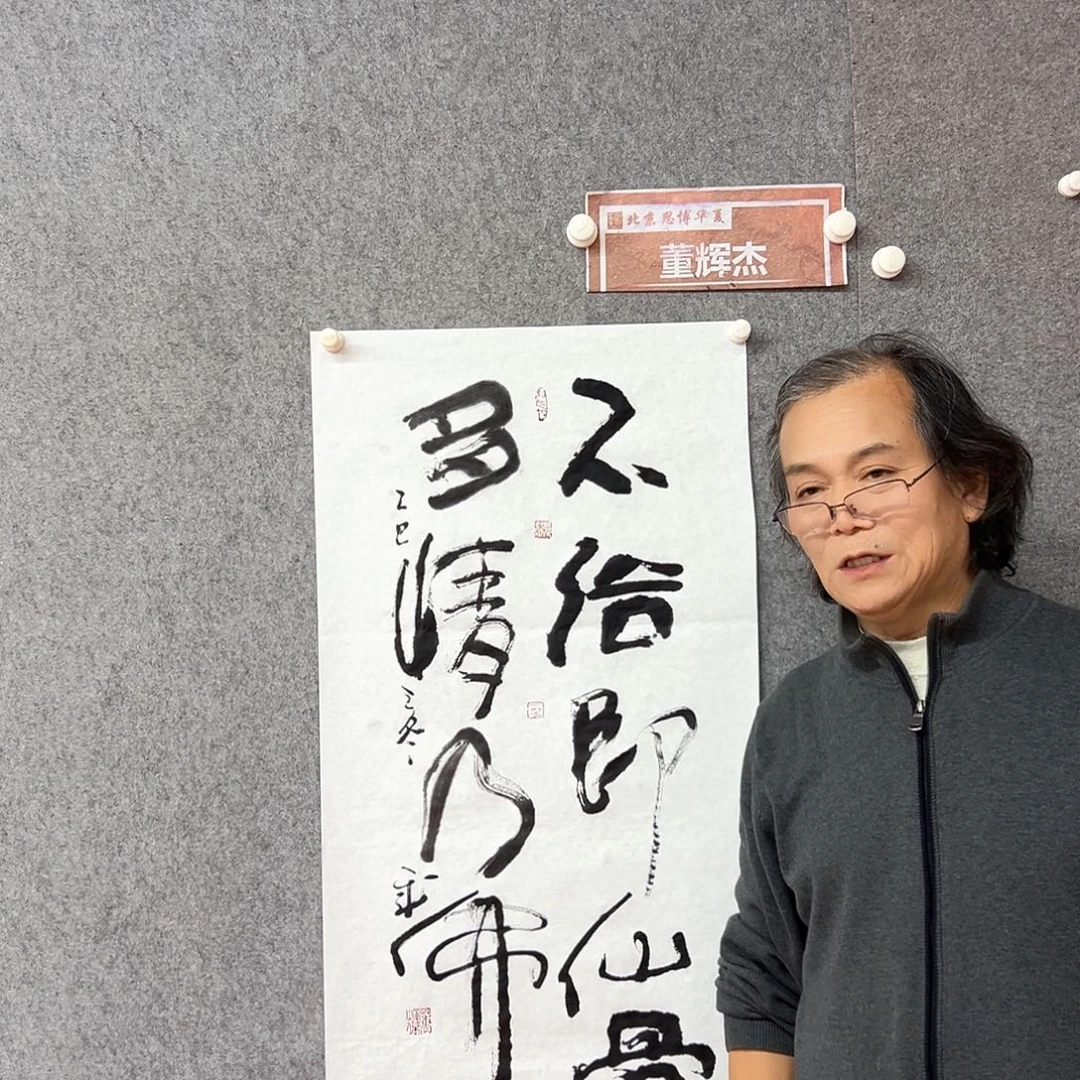 北京思博华夏
董辉杰
不俗即仙骨
多情乃佛
乙巳
三冬